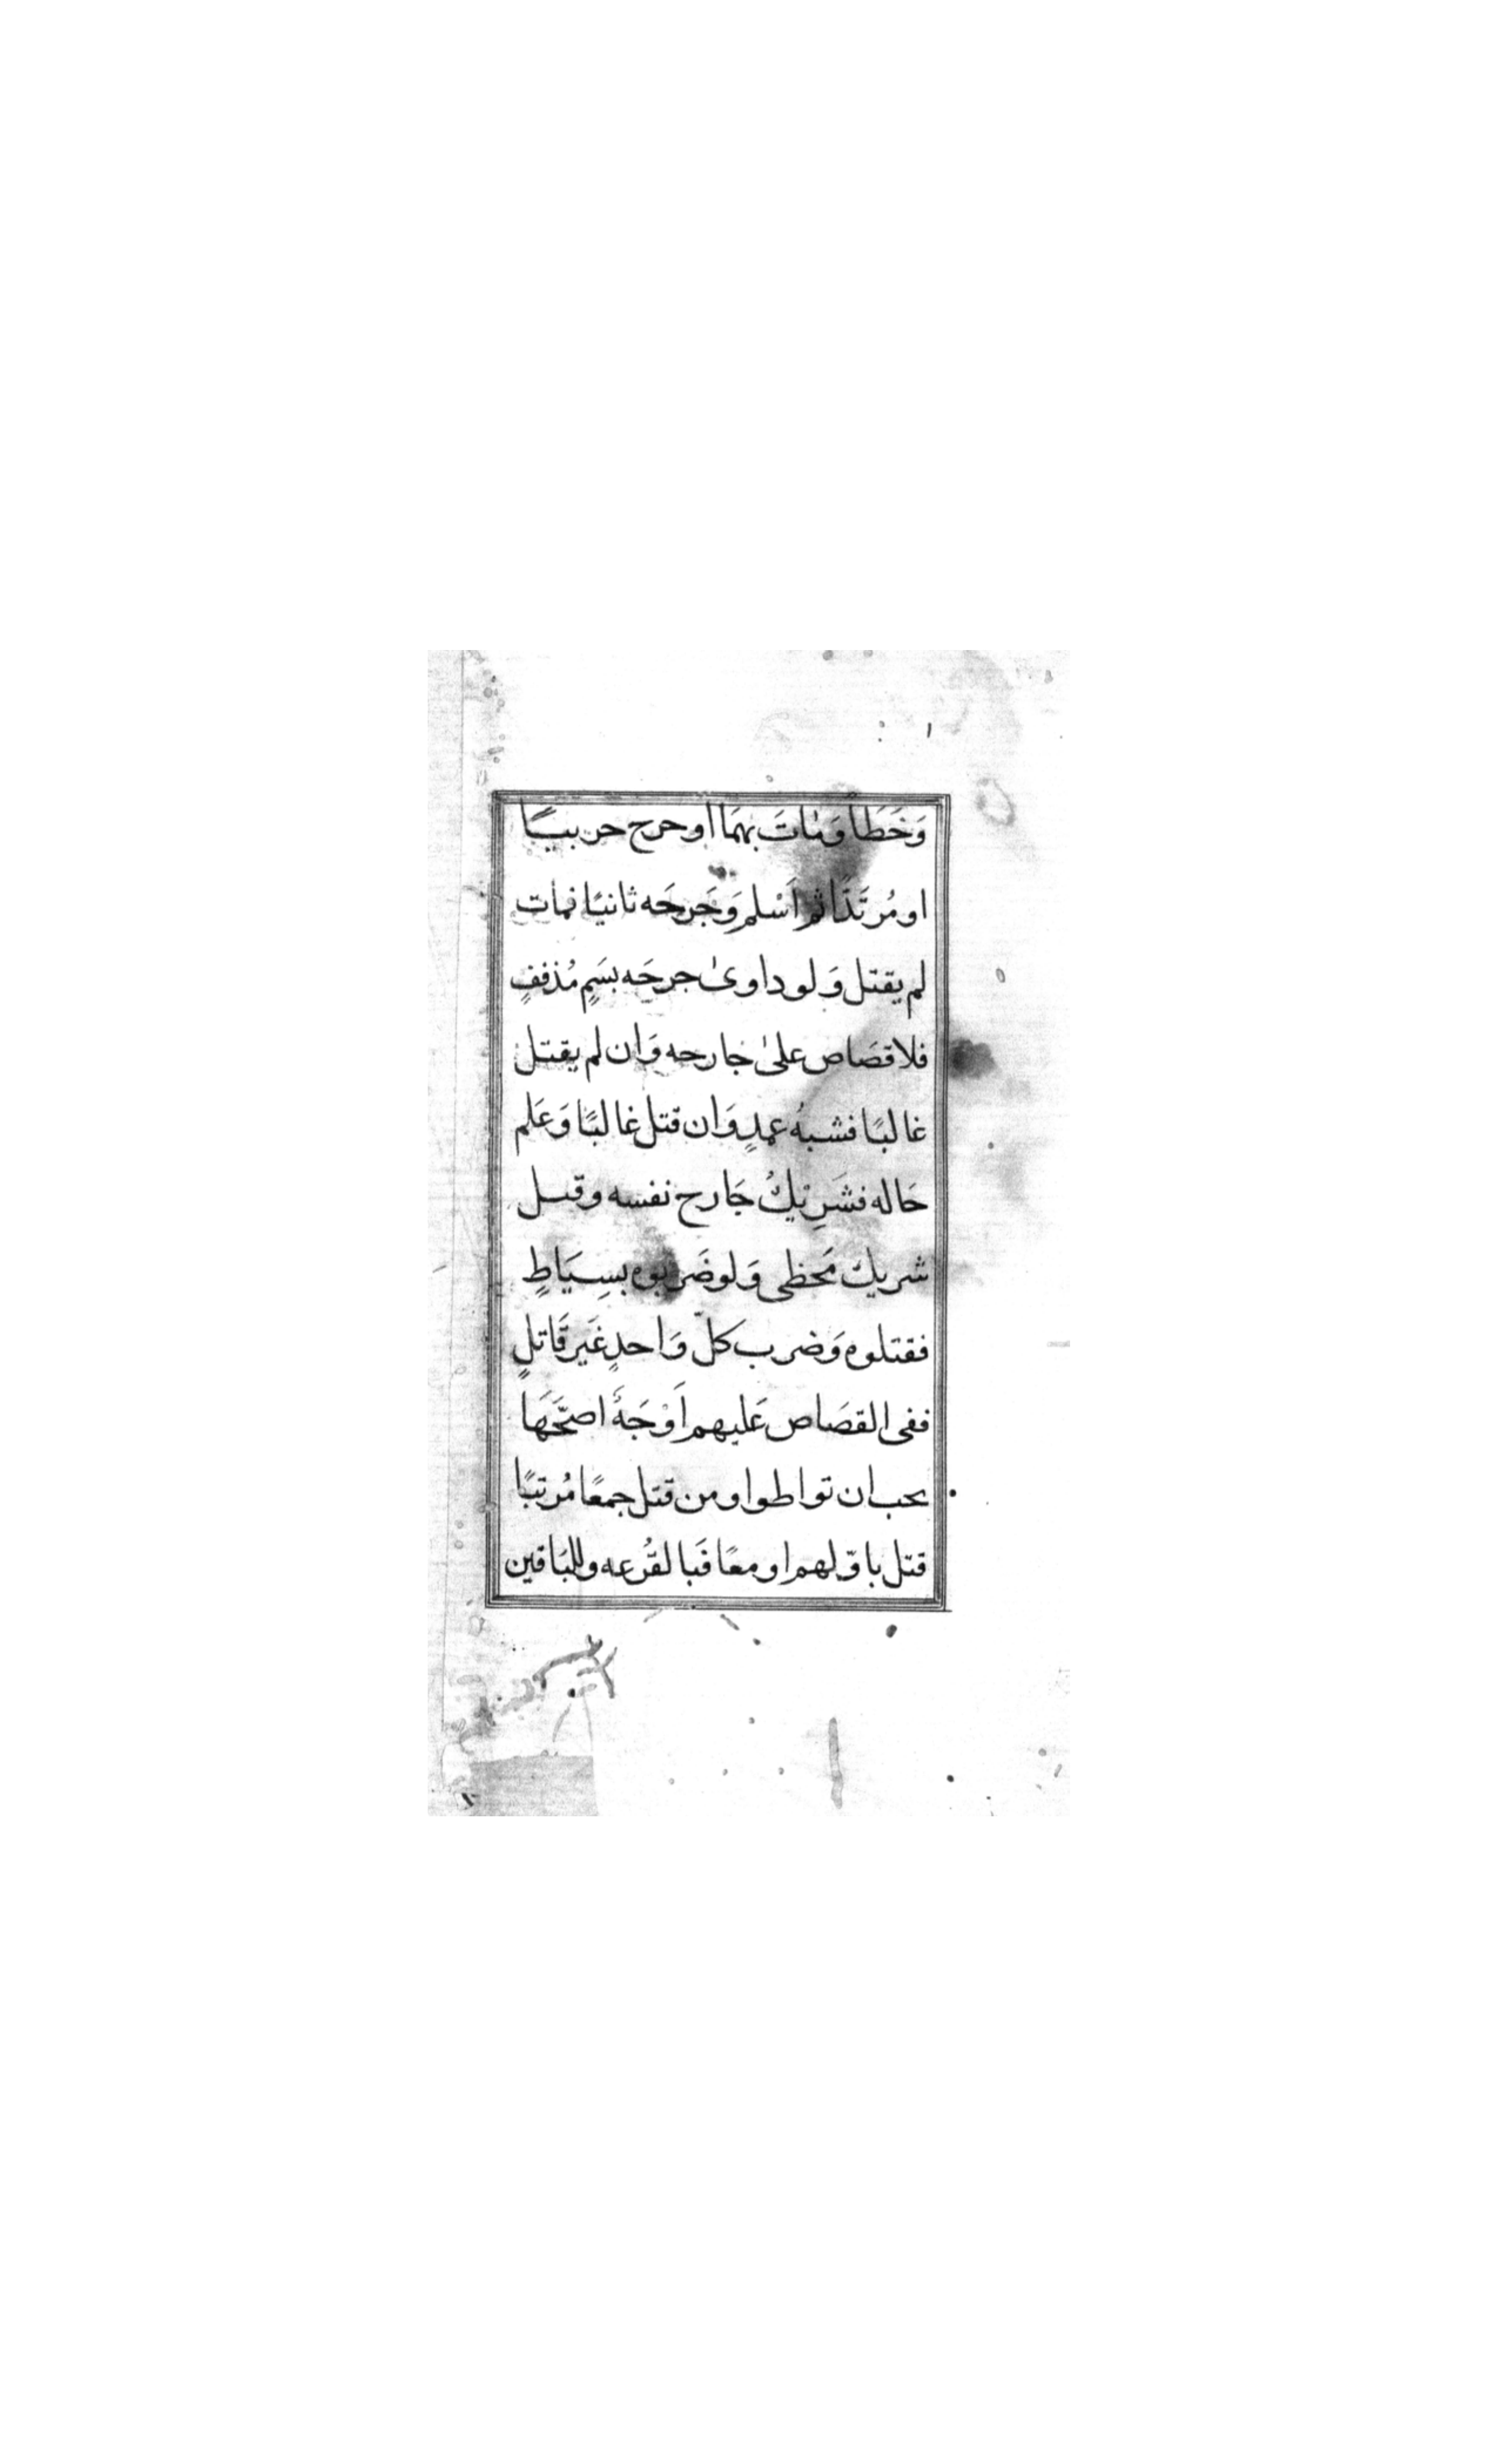 وَخَطَا وَمَاتَ بِهمَا او جرح حربيًا
او مُرتَدًا ثم اَسْلم وَجَرحَه ثانيًا فمات
لم يقتل وَلو داوىٰ جرحَه بسَمٍ مُذففٍ
فلا قصَاص علىٰ جارحه وَان لم يقتل
غالبًا فشبهُ عمدٍ وَان قتل غالبًا وَعَلم
حَاله فشَرِيْكُ جَارح نفسه وقيل
شريك مَخطى وَلو ضَربوه بسِيَاطٍ
فقتلوه وَضرب كلّ وَاحدٍ غَير قَاتلٍ
ففى القصَاص عَليهم اَوْجَهُ اصحّهَا
يجب ان تواطوا ومن قتل جمعًا مُرتبًا
قتل باوّلهم او معًا فَبالقُرعه وللبَاقين